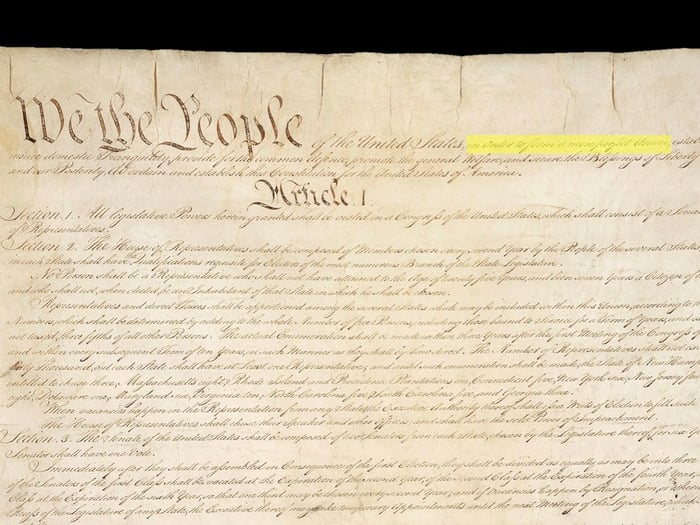 We the People of the United States, in Order to form a more perfect Union, estab
insure domestic Tranquility, provide for the common defence, promote the general Welfare, and secure the Blessings of Liberty
and our Posterity, do ordain and establish this Constitution for the United States of America.
Article. I.
Section. 1. All legislative Powers herein granted shall be vested in a Congress of the United States, which shall consist of a Sena
of Representatives.
Section. 2. The House of Representatives shall be composed of Members chosen every second Year by the People of the several States
in each State shall have the Qualifications requisite for Electors of the most numerous Branch of the State Legislature.
No Person shall be a Representative who shall not have attained to the Age of twenty five Years, and been seven Years a Citizen of
and who shall not, when elected, be an Inhabitant of that State in which he shall be chosen.
Representatives and direct Taxes shall be apportioned among the several States which may be included within this Union, according to
Numbers, which shall be determined by adding to the whole Number of free Persons, including those bound to Service for a Term of Years, and
not taxed, three fifths of all other Persons. The actual Enumeration shall be made within three Years after the first Meeting of the Congress of
and within every subsequent Term of ten Years, in such Manner as they shall by Law direct. The Number of Representatives shall not
thirty Thousand, but each State shall have at Least one Representative; and until such enumeration shall be made, the State of New Hamp
entitled to chuse three, Massachusetts eight, Rhode Island and Providence Plantations one, Connecticut five, New York six, New Jersey
eight, Delaware one, Maryland six, Virginia ten, North Carolina five, South Carolina five, and Georgia three.
When vacancies happen in the Representation from any State, the Executive Authority thereof shall issue Writs of Election to fill such
The House of Representatives shall chuse their Speaker and other Officers; and shall have the sole Power of Impeachment.
Section. 3. The Senate of the United States shall be composed of two Senators from each State, chosen by the Legislature thereof, for six
Senator shall have one Vote.
Immediately after they shall be assembled in Consequence of the first Election, they shall be divided as equally as may be into three
of the Senators of the first Class shall be vacated at the Expiration of the second Year, of the second Class at the Expiration of the fourth Year,
Class at the Expiration of the sixth Year, so that one third may be chosen every second Year; and if Vacancies happen by Resignation, or otherw
Recess of the Legislature of any State, the Executive thereof may make temporary Appointments until the next Meeting of the Legislature,